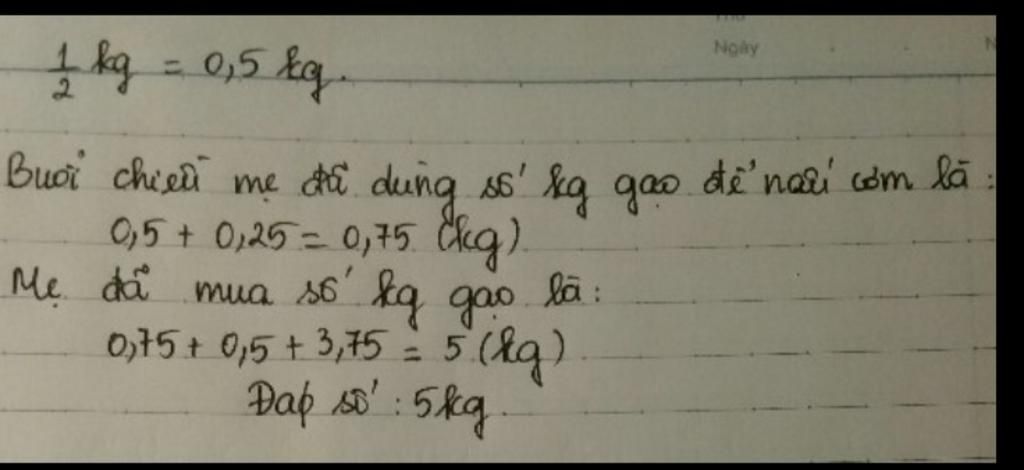 Ngày
1/2 kg = 0,5 kg.
Buổi chiều mẹ đã dùng số kg gạo để nấu cơm là:
0,5 + 0,25 = 0,75 (kg)
Mẹ đã mua số kg gạo là:
0,75 + 0,5 + 3,75 = 5 (kg)
Đáp số: 5kg.